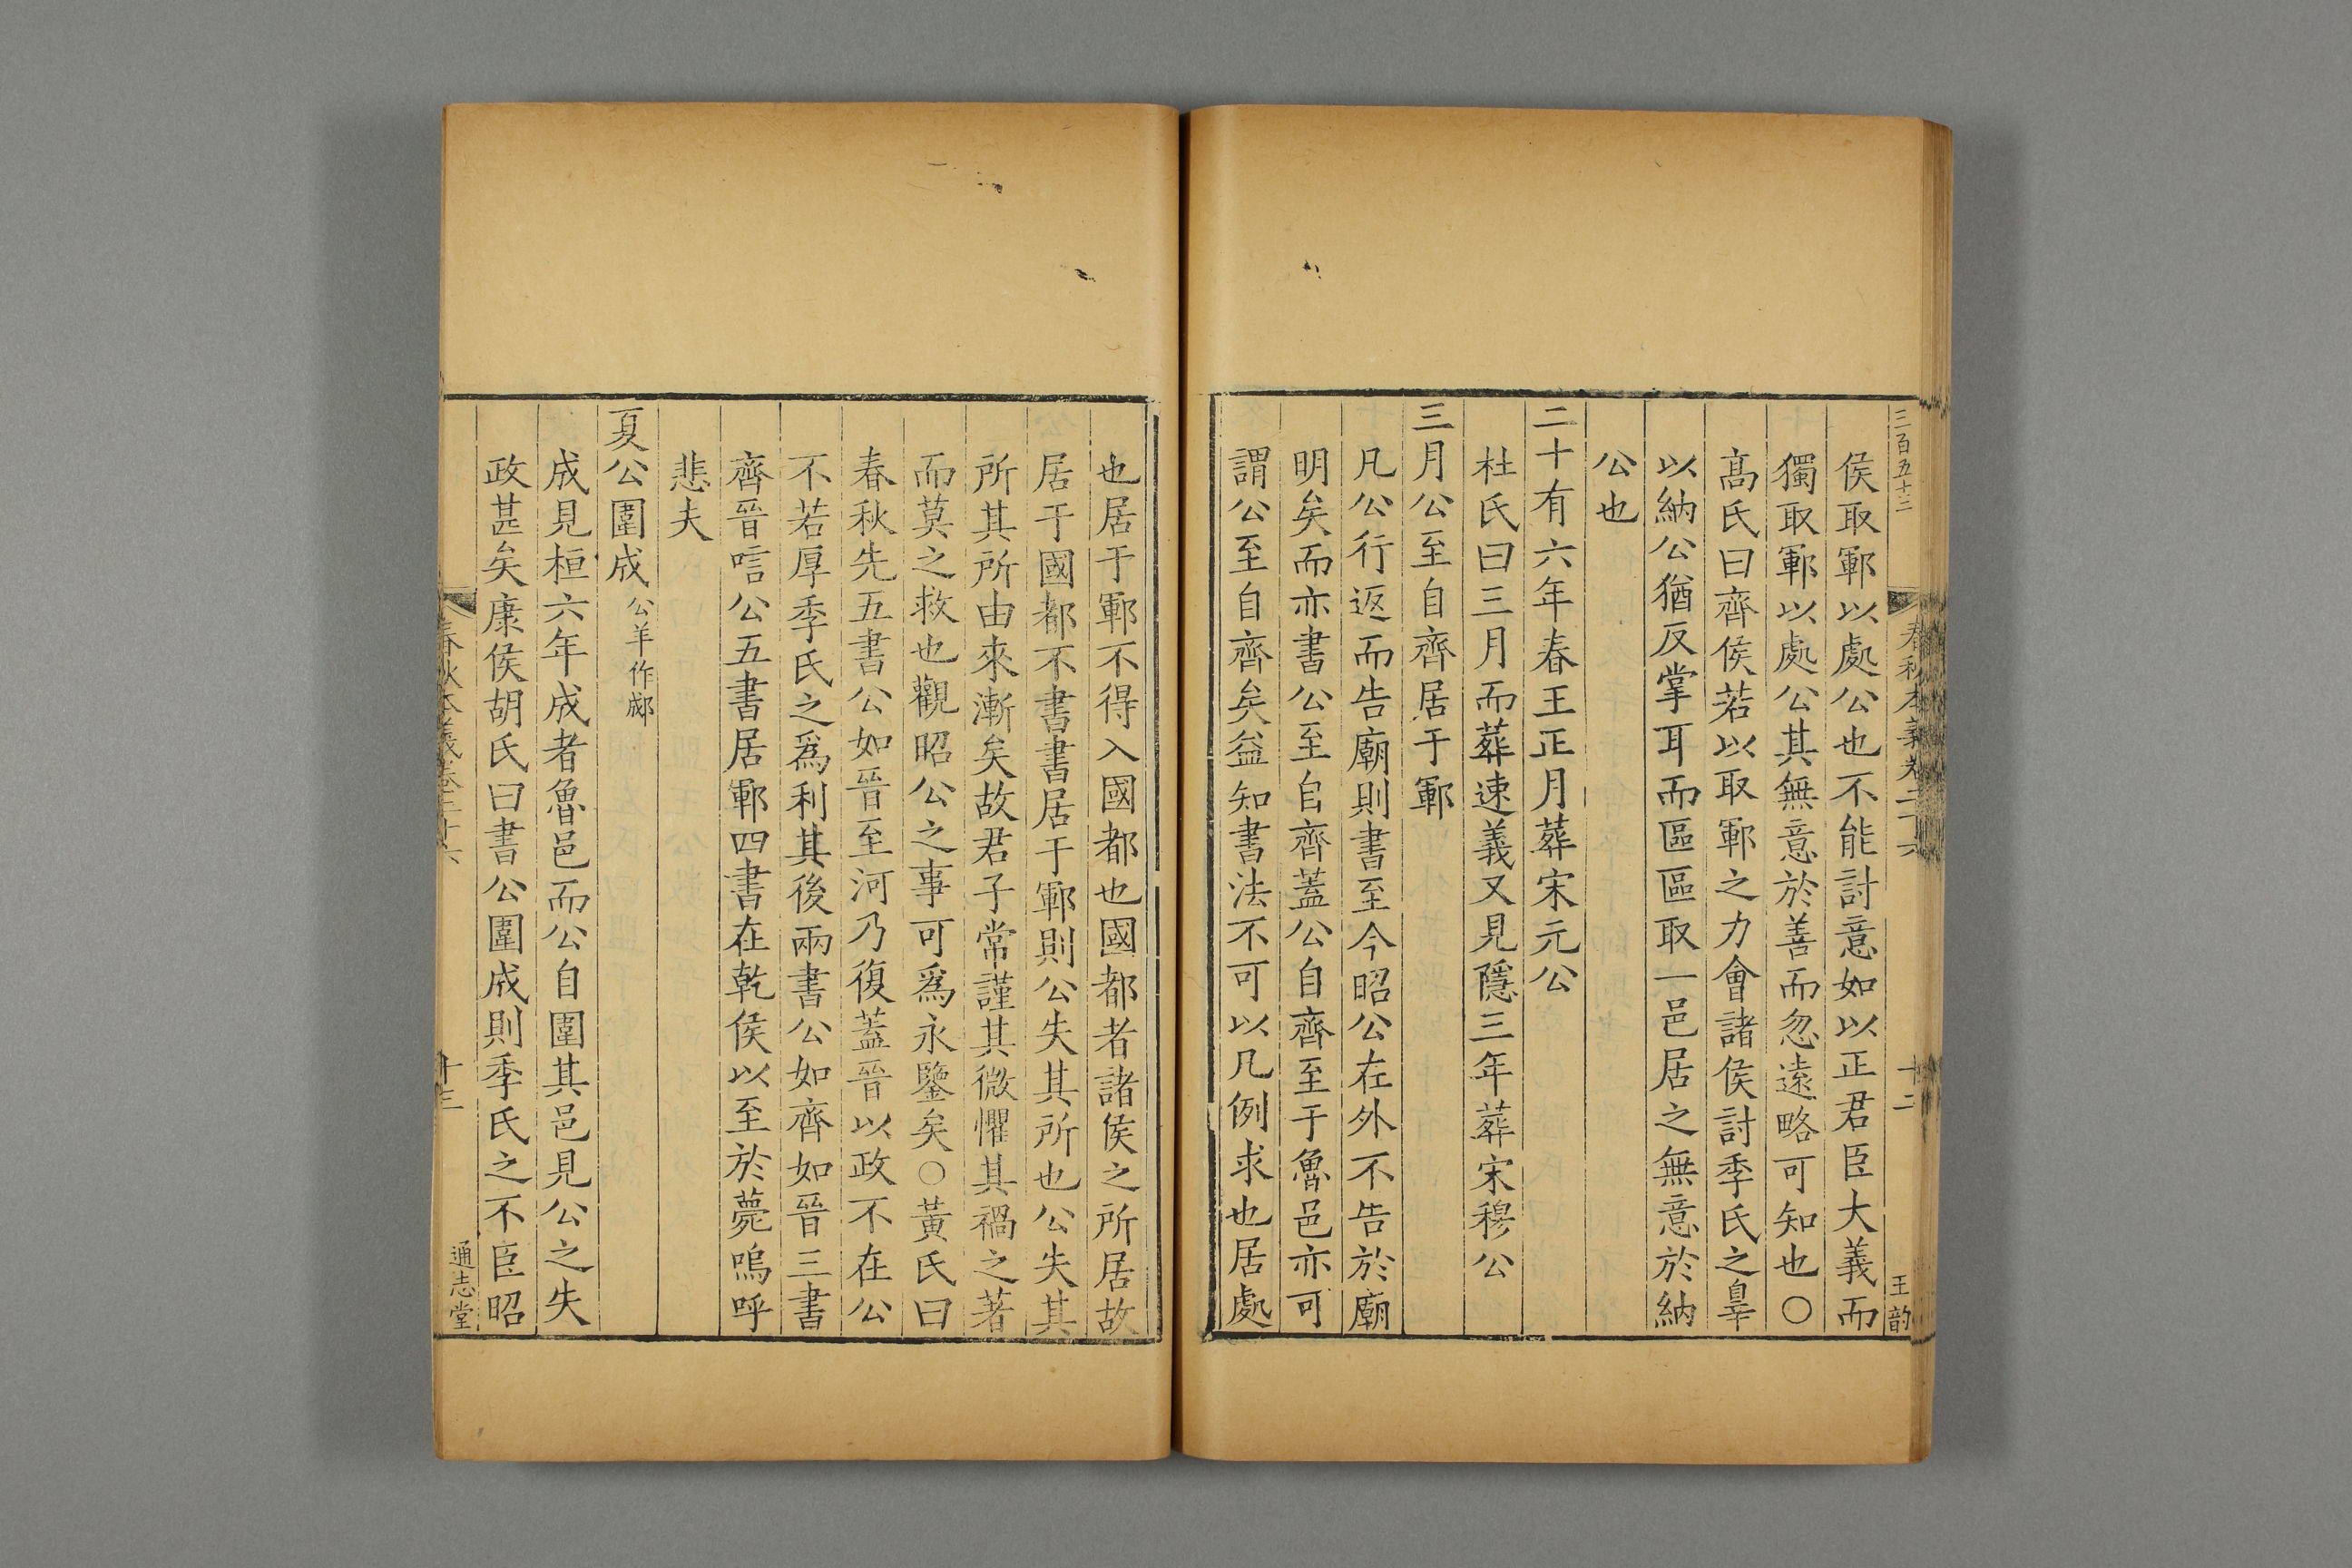 三百五十三
春秋本義卷二十六
十二
王韵
侯取鄆以處公也不能討意如以正君臣大義而
獨取鄆以處公其無意於善而忽遠略可知也○
髙氏曰齊侯若以取鄆之力會諸侯討季氏之辠
以納公猶反掌耳而區區取一邑居之無意於納
公也
二十有六年春王正月葬宋元公
杜氏曰三月而葬速義又見隱三年葬宋穆公
三月公至自齊居于鄆
凡公行返而告廟則書至今昭公在外不告於廟
明矣而亦書公至自齊蓋公自齊至于魯邑亦可
謂公至自齊矣益知書法不可以凡例求也居處
也居于鄆不得入國都也國都者諸侯之所居故
居于國都不書書居于鄆則公失其所也公失其
所其所由來漸矣故君子常謹其微懼其禍之著
而莫之救也觀昭公之事可爲永鑒矣○黃氏曰
春秋先五書公如晉至河乃復蓋晉以政不在公
不若厚季氏之爲利其後兩書公如齊如晉三書
齊晉唁公五書居鄆四書在乾侯以至於薨嗚呼
悲夫
夏公圍成公羊作郕
成見桓六年成者魯邑而公自圍其邑見公之失
政甚矣康侯胡氏曰書公圍成則季氏之不臣昭
春秋本義卷二十六
十三
通志堂